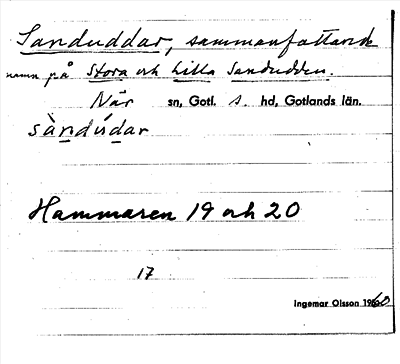 Sanduddar, sammanfattande
namn på Stora och Lilla Sandudden.
När sn, Gotl. S. hd, Gotlands län.
sàndúdar
Hammaren 19 och 20
17
Ingemar Olsson 1960